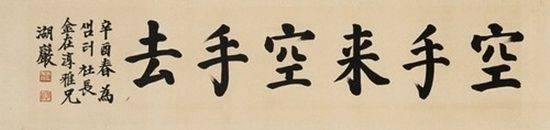 空手来空手去
辛酉春 為
샘터 社長
金在淳雅兄
湖巖